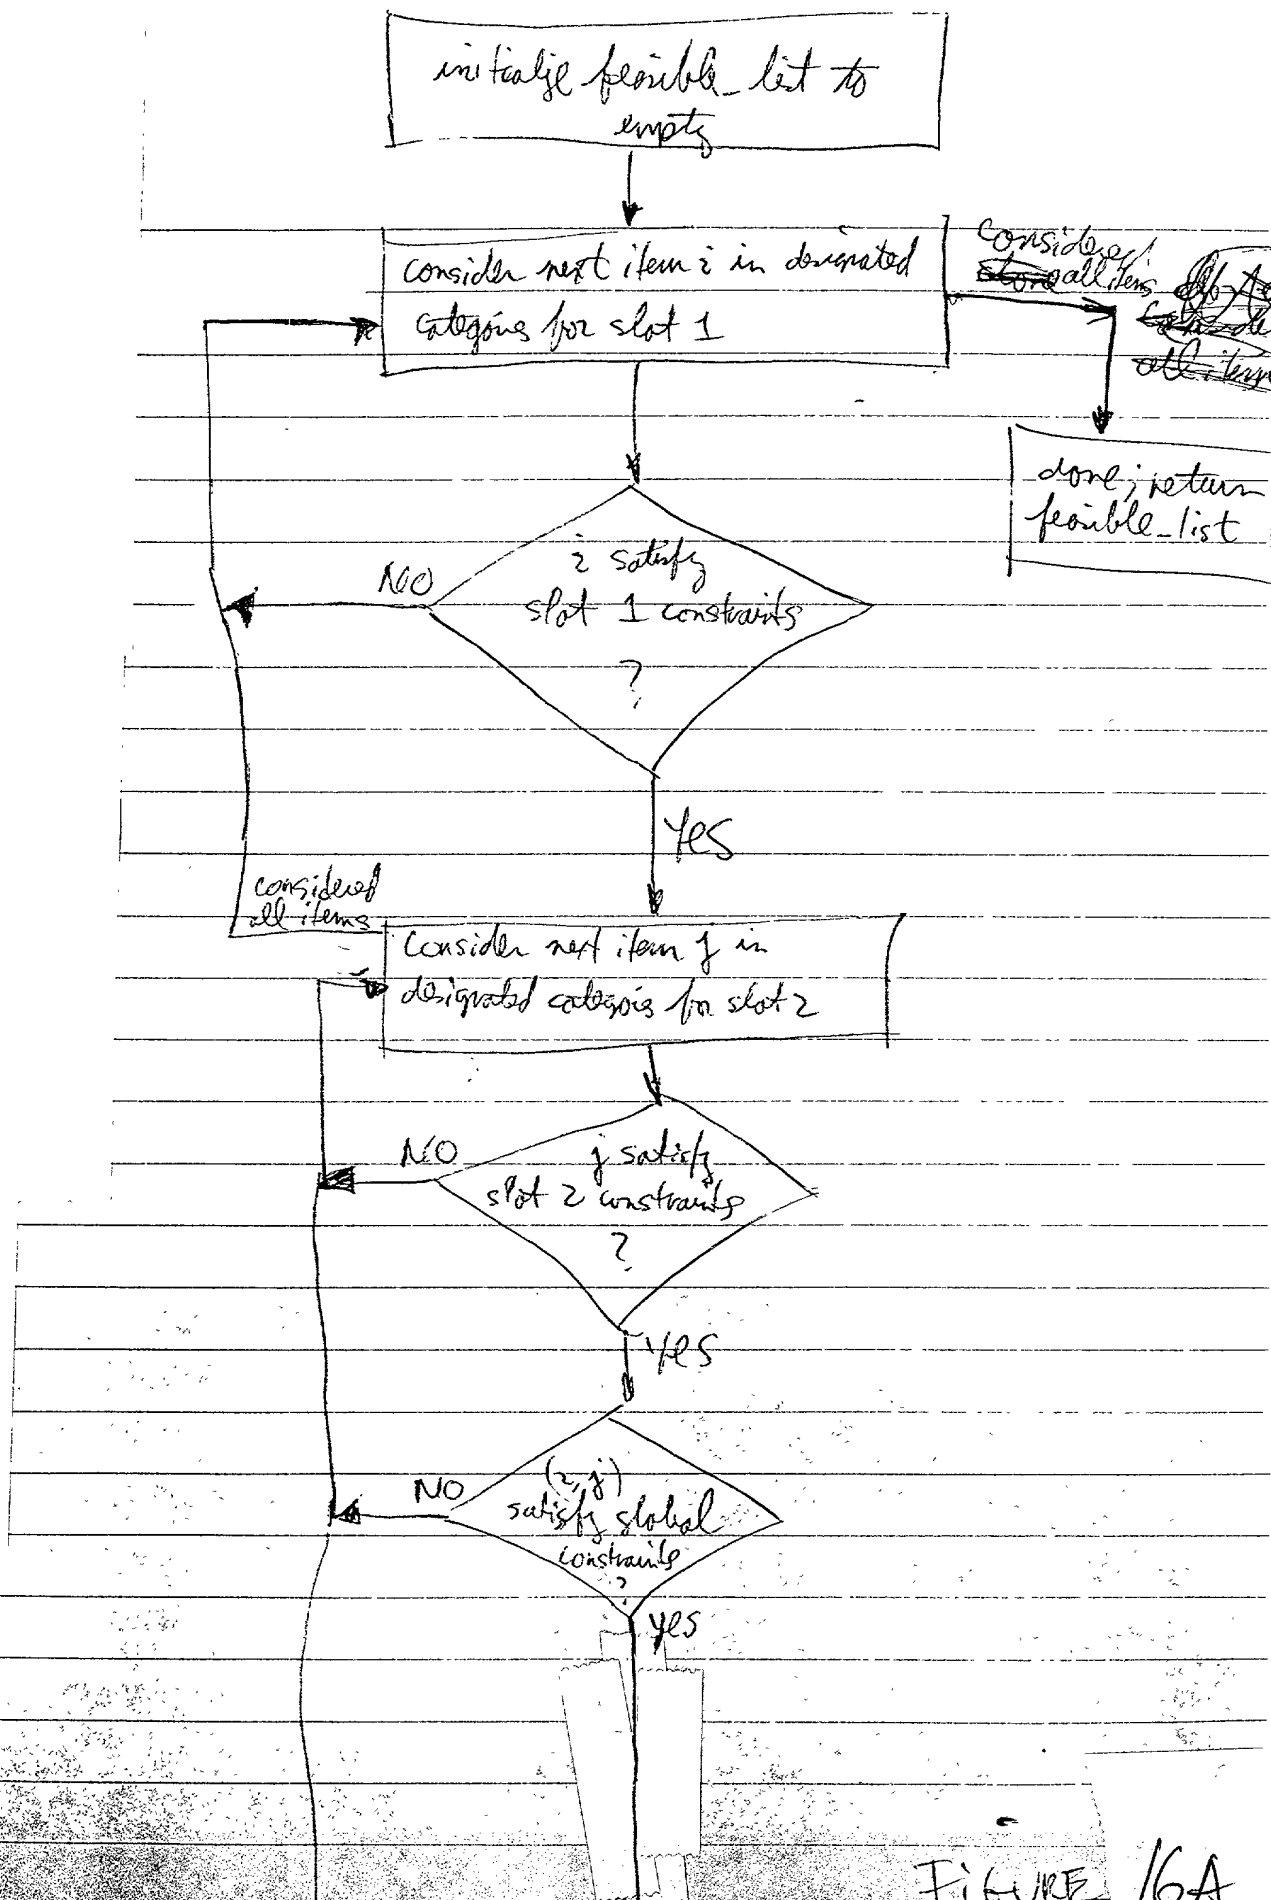 initialize feasible_list to
empty
consider next item i in designated
categories for slot 1
considered
all items
done; return
feasible_list
i satisfy
slot 1 constraints
?
NO
Yes
considered
all items
consider next item j in
designated categories for slot 2
NO
j satisfy
slot 2 constraints
?
Yes
NO
(i, j)
satisfy global
constraints
?
yes
FIGURE 16A